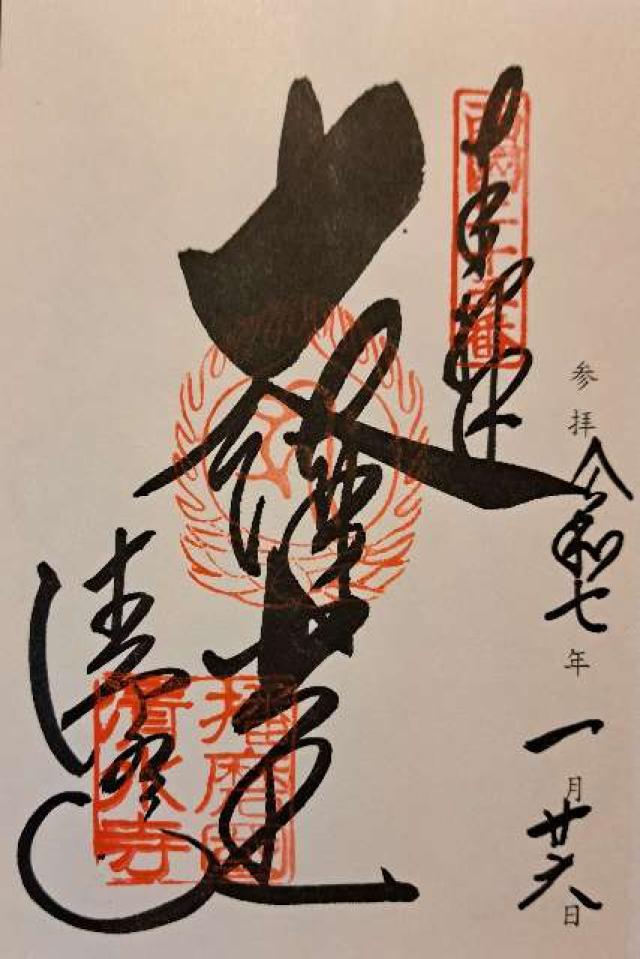 参拝 令和七年一月廿六日
奉拝
西國二十五番
大講堂
清水寺
播磨國
清水寺